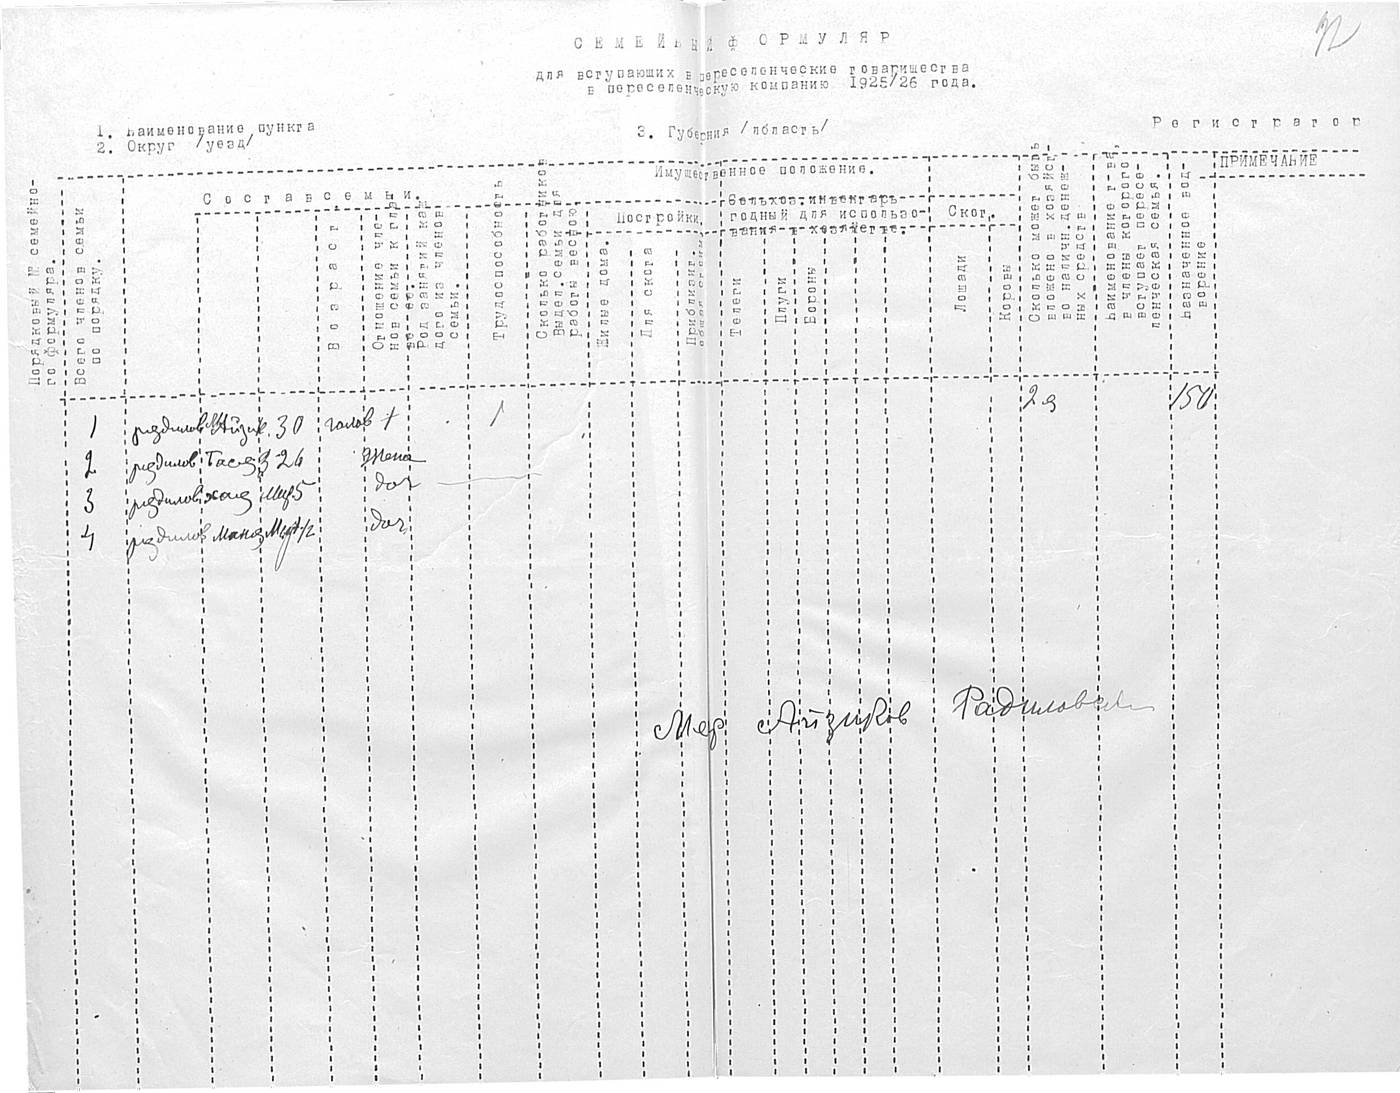 32
СЕМЕЙНЫЙ ФОРМУЛЯР
для вступающих в переселенческие товарищества
в переселенческую компанию 1925/26 года.
1. Наименование пункта
2. Округ /уезд/
3. Губерния /область/
Регистратор
Порядковый № семейно-
го формуляра.
Всего членов семьи
по порядку.
Состав семьи.
Возраст.
Отношение чле-
нов семьи к гла-
ве ее.
Род занятий каж
дого из членов
семьи.
Трудоспособность
Сколько работников
выдел. семьи для
работы весною
Имущественное положение.
Постройки.
Жилые дома.
Для скота
Приблизит.
Сельхоз.инвентарь
годный для использо-
вания в хозяйстве.
Телеги
Плуги
Бороны
Скот.
Лошади
Коровы
Сколько может быть
вложено в хозяйст-
во наличн.денеж-
ных средств
Наименование т-ва,
в члены которого
вступает пересе-
ленческая семья.
Назначенное вод-
ворение
ПРИМЕЧАНИЕ
1 радилов Айзик 30 голов 1 1 150
2 радилов Тася 26 жена
3 радилов 5 доч
4 радилов доч
Мер Айзиков Радилов